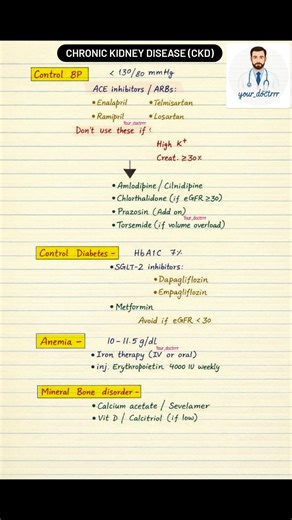 CHRONIC KIDNEY DISEASE (CKD)
your_doctrrr
Control BP - < 130/80 mmHg
ACE inhibitors / ARBs:
• Enalapril • Telmisartan
• Ramipril • Losartan
Your_doctrrr
Don't use these if :
High K+
Creat. ≥30%
• Amlodipine / Cilnidipine
• Chlorthalidone (if eGFR ≥30)
• Prazosin (Add on)
Your_doctrrr
• Torsemide (if volume overload)
Control Diabetes - HbA1C 7%
• SGLT-2 inhibitors:
• Dapagliflozin
• Empagliflozin
• Metformin
Avoid if eGFR < 30
Anemia - 10 - 11.5 g/dL
Your_doctrrr
• Iron therapy (IV or oral)
• inj. Erythropoietin 4000 IU weekly
Mineral Bone disorder -
• Calcium acetate / Sevelamer
• Vit D / Calcitriol (if low)